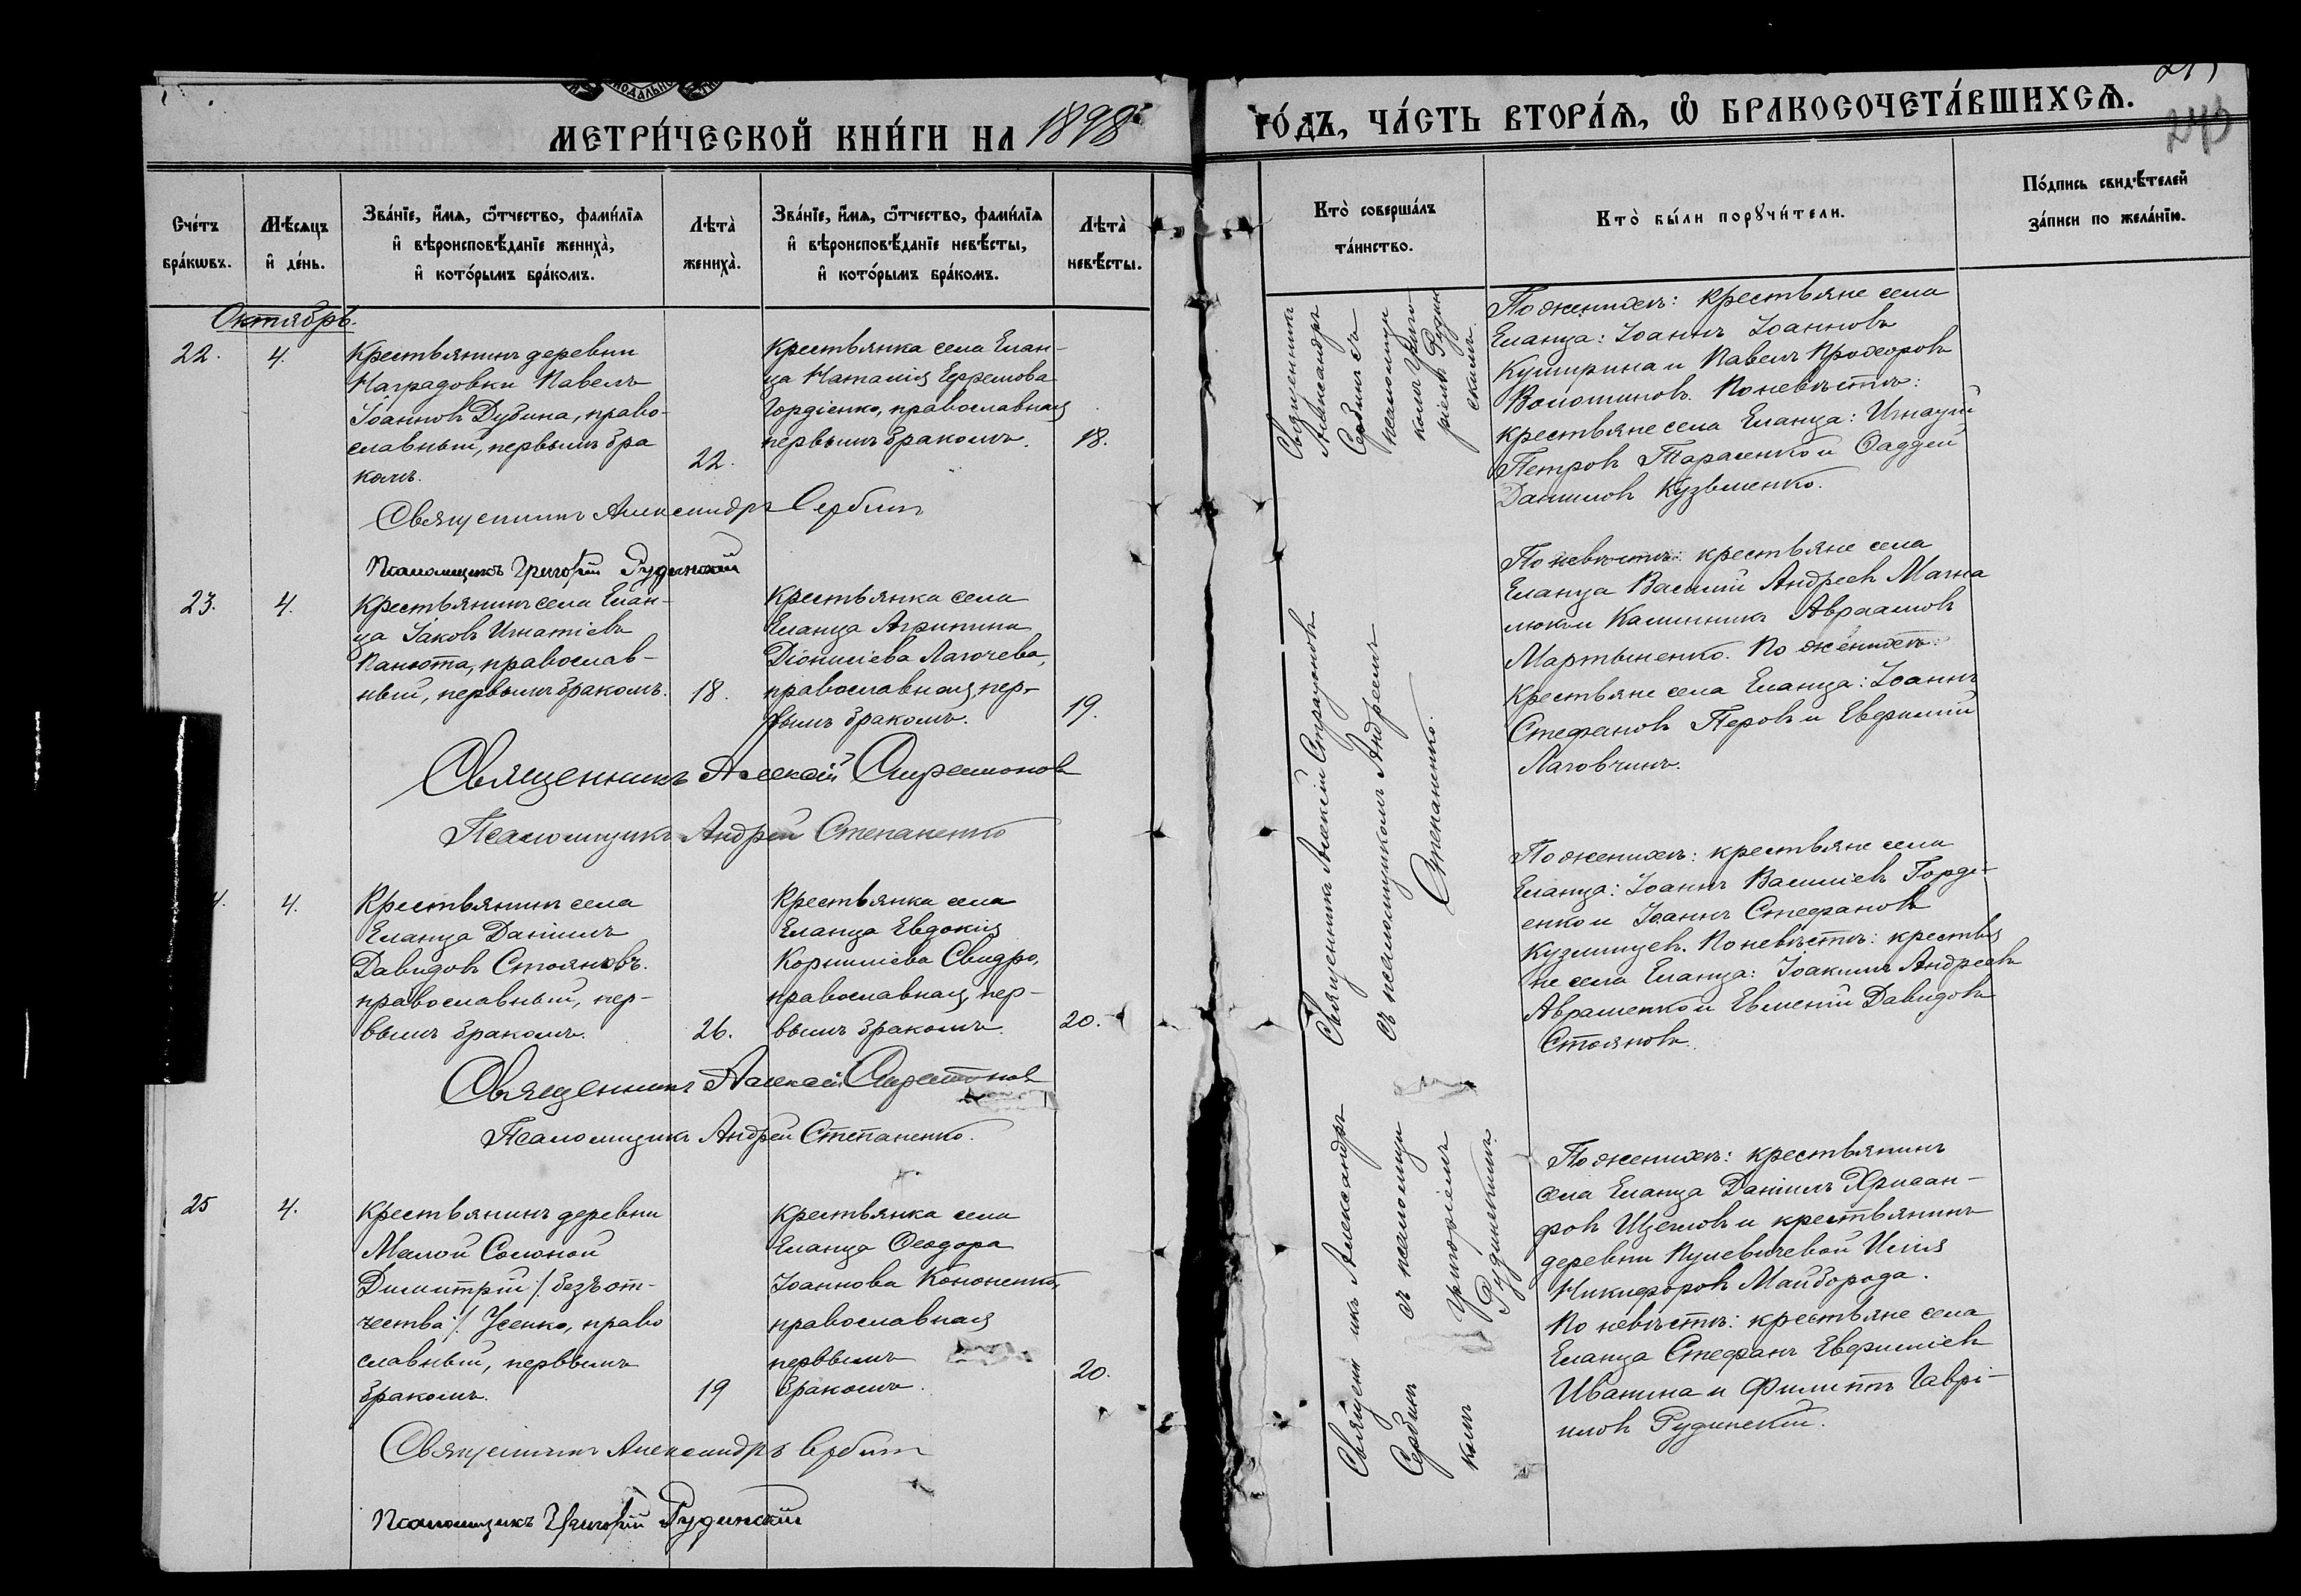 МЕТРИ́ЧЕСКОЙ КНИ́ГИ НА 1898
ГО́ДЪ, ЧА́СТЬ ВТОРА́Я, Ѽ БРАКОСОЧЕТА́ВШИХСѦ.
243
Сче́тъ
бра́кѡвъ.
Мѣ́сяцъ
и҆ де́нь.
Зва́нїе, и҆́мѧ, ѻ҆́тчество, фами́лїѧ
и҆ вѣроисповѣ́данїе жениха̀,
и҆ кото́рымъ бра́комъ.
Лѣ́та̀
жениха̀.
Зва́нїе, и҆́мѧ, ѻ҆́тчество, фами́лїѧ
и҆ вѣроисповѣ́данїе невѣ́сты,
и҆ кото́рымъ бра́комъ.
Лѣ́та̀
невѣ́сты.
Кто̀ соверша́лъ
та́инство.
Кто̀ бы́ли порꙋчи́тели.
По́дпись свидѣ́телей
за́писи по жела́нїю.
Октябрь.
22.
4.
Крестьянинъ деревни
Наградовки Павелъ
Іоанновъ Дубина, право-
славный, первымъ бра
комъ.
22.
Крестьянка села Елан-
ца Наталія Ефремова
Гордіенко, православная
первымъ бракомъ.
18.
Священникъ
Александръ
Сербинъ съ
псаломщи
комъ Григо-
ріемъ Рудин
скимъ.
По женихѣ: крестьяне села
Еланца: Іоаннъ Іоанновъ
Кушнрина и Павелъ Прохоровъ
Волошиновъ. По невѣстѣ:
крестьяне села Еланца: Игнатій
Петровъ Тарасенко и Фаддей
Даниловъ Кузьменко.
Священникъ Александръ Сербинъ
Псаломщикъ Григорій Рудинскій
23.
4.
Крестьянинъ села Елан-
ца Іаковъ Игнатіевъ
Панюта, православ-
ный, первымъ бракомъ.
18.
Крестьянка села
Еланца Агрипина
Діонисіева Лагочева,
православная, пер-
вымъ бракомъ.
19.
Священникъ Алексій
съ псаломщикомъ Андреемъ
Степаненко.
По невѣстѣ: крестьяне села
Еланца Василій Андреевъ Магна
люкъ и Калинникъ Авраамовъ
Мартыненко. По женихѣ:
Крестьяне села Еланца: Іоаннъ
Стефановъ Перовъ и Евфимій
Лаговчинъ.
Священникъ Алексій
Псаломщикъ Андрей Степаненко
4.
4.
Крестьянинъ села
Еланца Даніилъ
Давидовъ Стояновъ.
православный, пер-
вымъ бракомъ.
26.
Крестьянка села
Еланца Евдокія
Корниліева Свидро,
православная, пер-
вымъ бракомъ.
20.
По женихѣ: крестьяне села
Еланца: Іоаннъ Василіевъ Горді-
енко и Іоаннъ Стефановъ
Кузминцев. По невѣстѣ: крестья
не села Еланца: Іоакимъ Андреевъ
Авраменко и Евменій Давидовъ
Стояновъ.
Священникъ Алексій
Псаломщикъ Андрей Степаненко.
25
4.
Крестьянинъ деревни
Малой Солоной
Димитрій /: безъ от-
чества :/ Усенко, право
славный, первымъ
бракомъ.
19
Крестьянка села
Еланца Ѳеодора
Іоаннова Кононенко,
православная
первымъ
бракомъ.
20.
Священникъ Александръ
Сербинъ съ псаломщи
комъ Григоріемъ
Рудинскимъ.
По женихѣ: крестьянинъ
села Еланца Даніилъ Хрисан-
фовъ Щегловъ и крестьянинъ
деревни Пулевичевой Илія
Никифоровъ Майборода.
По невѣстѣ: крестьяне села
Еланца Стефанъ Евфиміевъ
Иванина и Филиппъ Гаврі-
иловъ Рудинскій.
Священникъ Александръ Сербинъ
Псаломщикъ Григорій Рудинскій